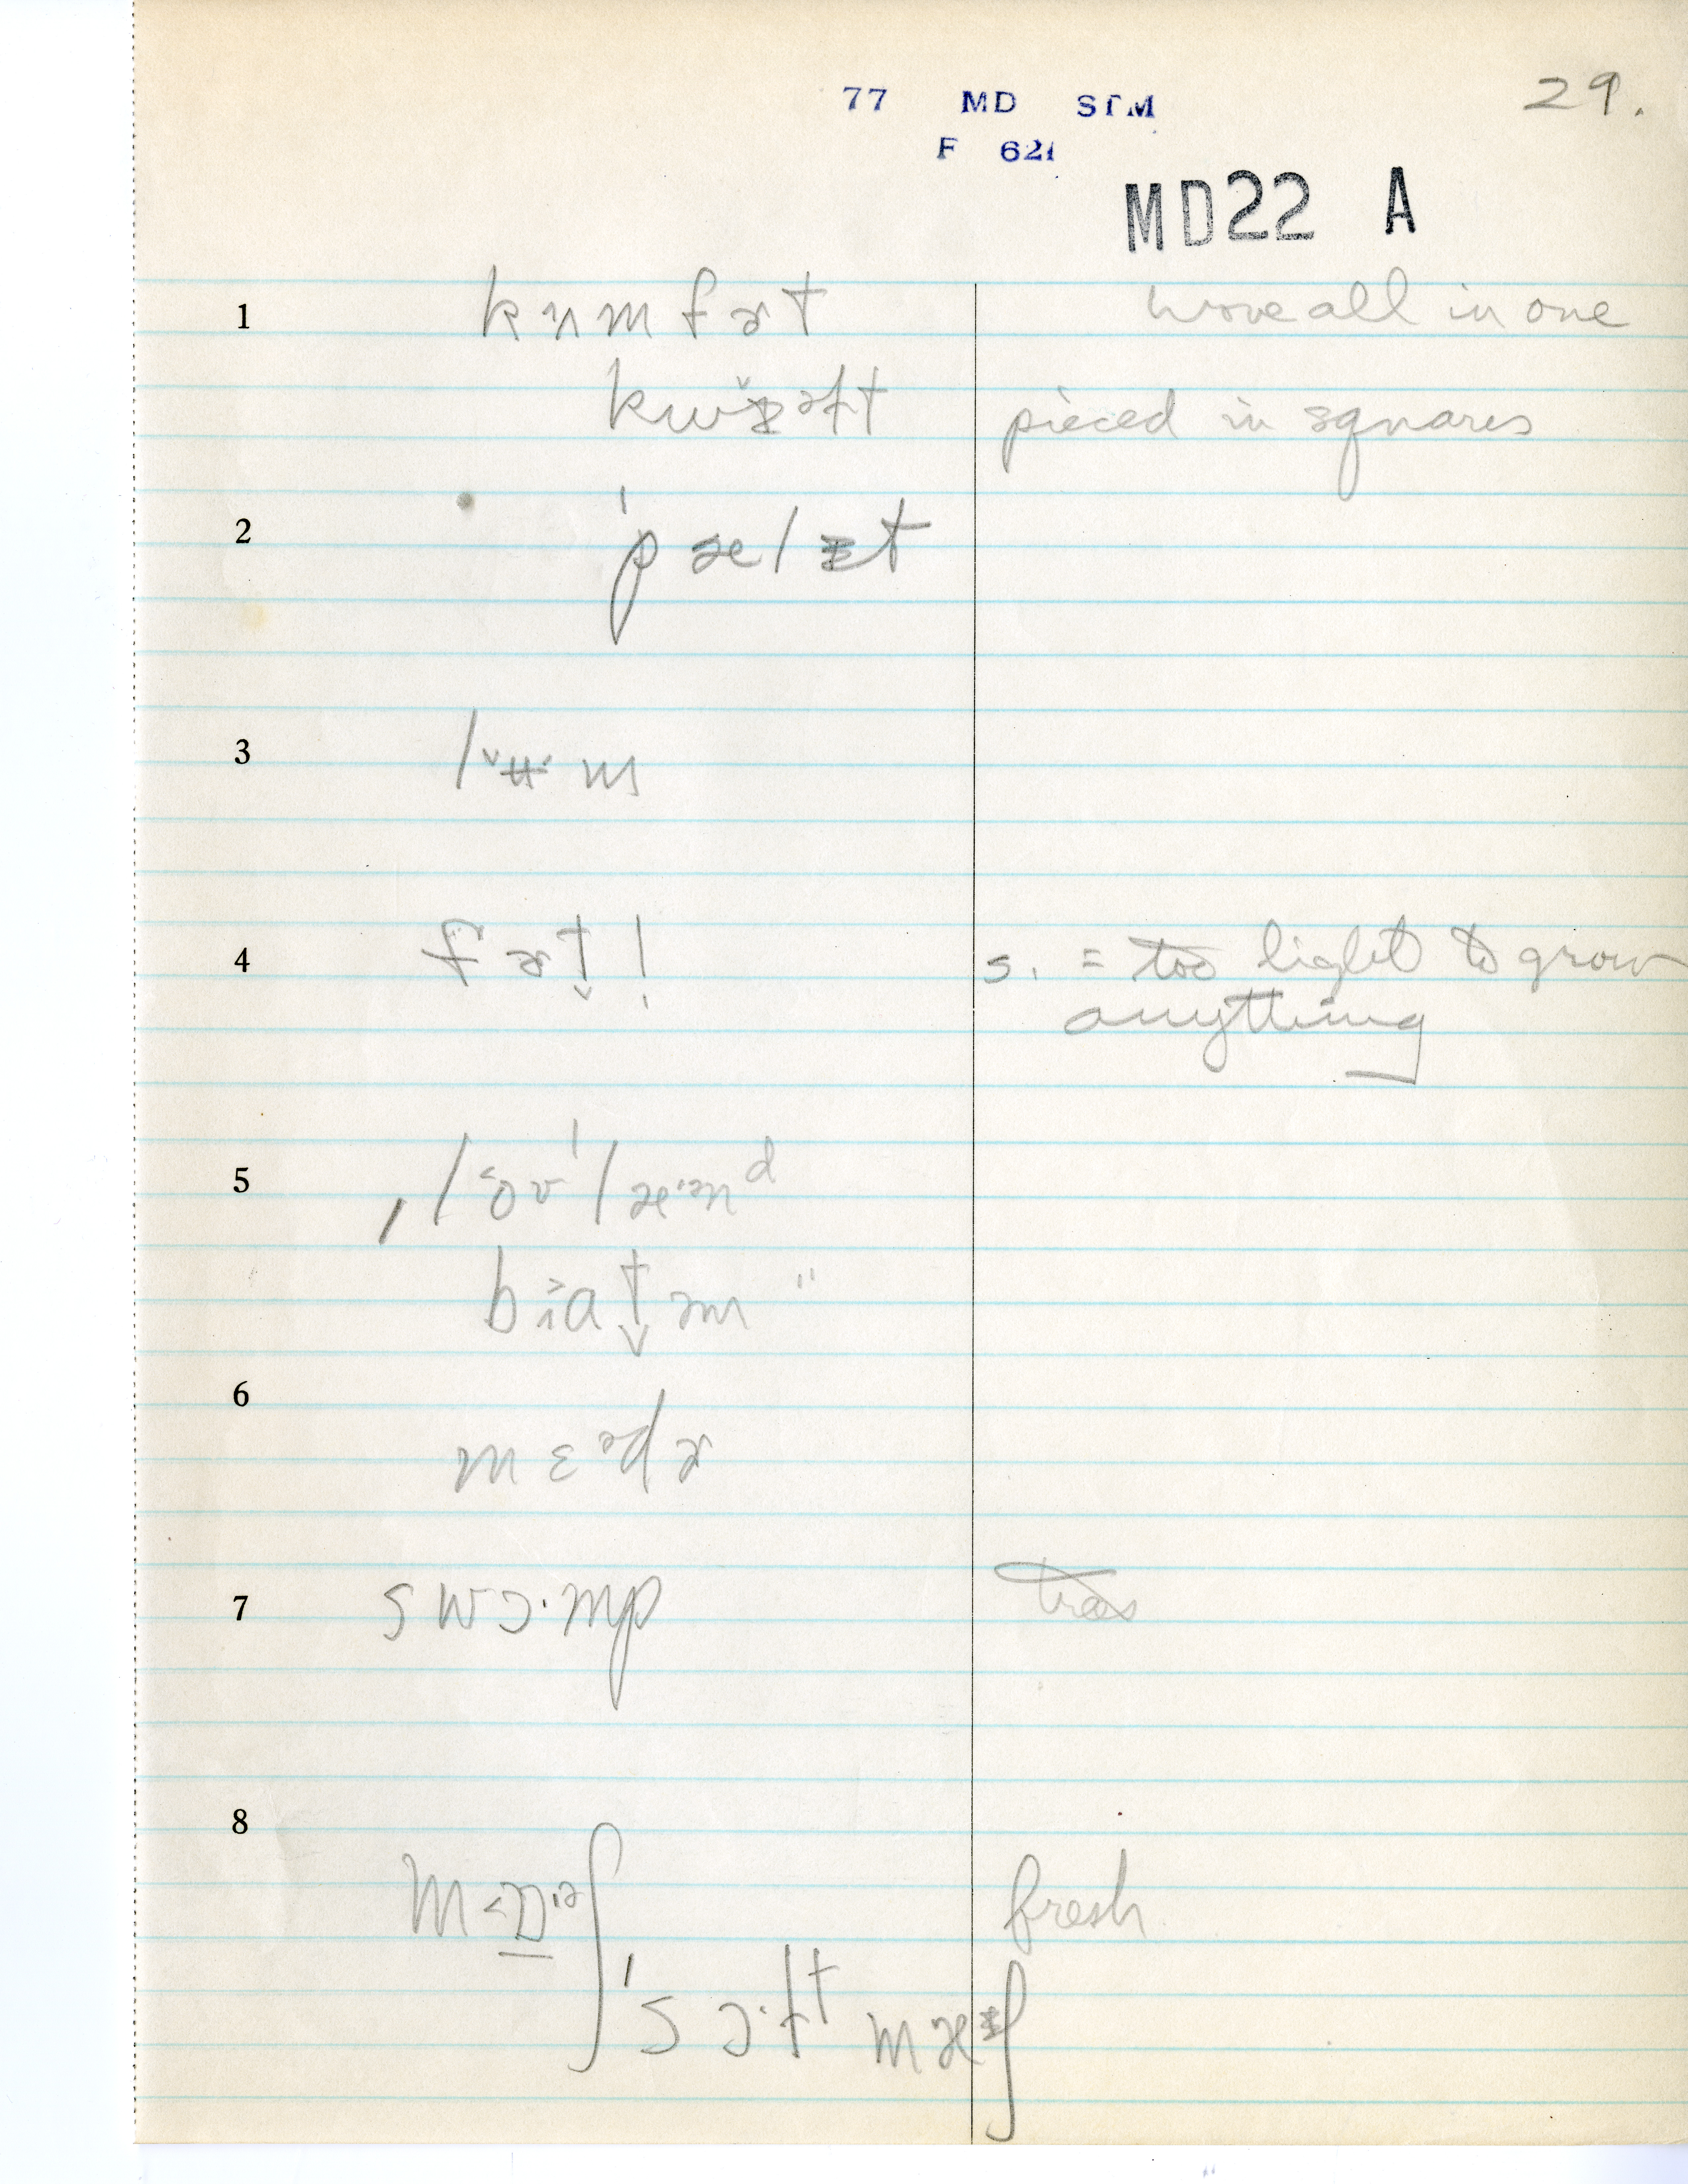 77 MD STM
F 621
29.
MD22 A
1 kʌmfɚt wove all in one
kwɪ̆əɫt pieced in squares
2 ˈpælɨt
3 lᵛʉ·m
4 s. = too light to grow
anything
5 ˌloʊˈlæ·ənᵈ
6 mɛᵊdɚ
7 swɔ·mp trees
8 fresh
ˈsɔ·ft mæᵻʃ